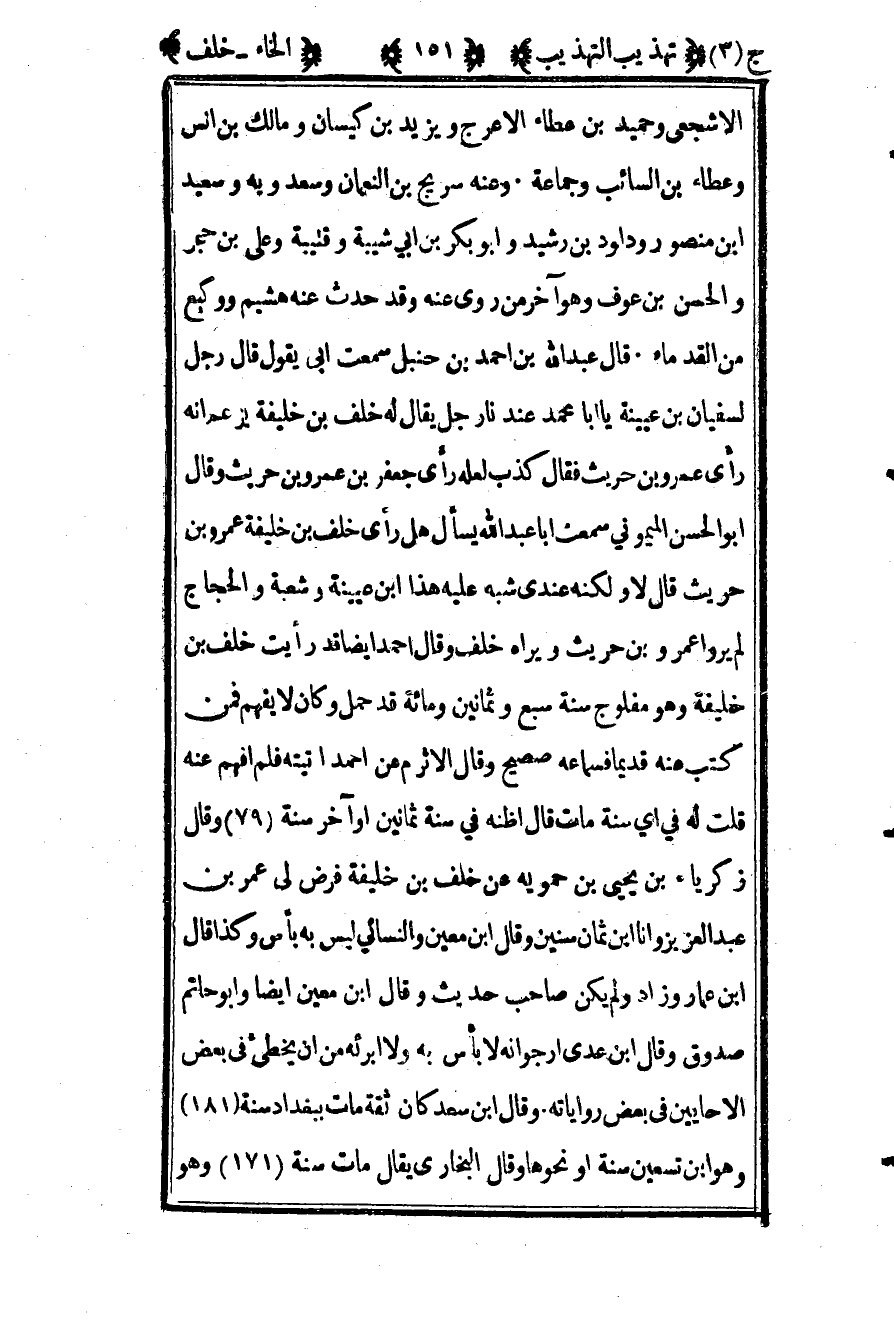 ج (٣) ﴿ تهذيب التهذيب ﴾ ﴿ ١٥١ ﴾ ﴿ الخاء - خلف ﴾
الاشجعي وحميد بن عطاء الاعرج و يزيد بن كيسان و مالك بن انس
وعطاء بن السائب وجماعة ٠ وعنه سريج بن النعمان وسعدويه و سعيد
ابن منصور وداود بن رشيد و ابو بكر بن ابي شيبة و قتيبة وعلي بن حجر
و الحسن بن عوف وهوآخر من روى عنه وقد حدث عنه هشيم ووكيع
من القدماء ٠ قال عبدالله بن احمد بن حنبل سمعت ابى يقول قال رجل
لسفيان بن عيينة يا ابا محمد عندنا رجل يقال له خلف بن خليفة يزعم انه
رأى عمرو بن حريث فقال كذب لعله رأى جعفر بن عمرو بن حريث وقال
ابوالحسن الميموني سمعت ابا عبدالله يسأل هل رأى خلف بن خليفة عمرو بن
حريث قال لا و لكنه عندى شبه عليه هذا ابن عيينة و شعبة و الحجاج
لم يروا عمرو بن حريث و يراه خلف وقال احمد ايضا قد رأيت خلف بن
خليفة وهو مفلوج سنة سبع و ثمانين ومائة قد حمل وكان لا يفهم فمن
كتب عنه قديما فسماعه صحيح وقال الاثرم عن احمد اتيته فلم افهم عنه
قلت له في اي سنة مات قال اظنه في سنة ثمانين اوآخر سنة (٧٩) وقال
زكرياء بن يحيى بن حمويه عن خلف بن خليفة فرض لى عمر بن
عبدالعزيز وانا ابن ثمان سنين وقال ابن معين والنسائي ليس به بأس وكذا قال
ابن عمار وزاد ولم يكن صاحب حديث و قال ابن معين ايضا وابوحاتم
صدوق وقال ابن عدى ارجوانه لا بأس به ولا ابرئه من ان يخطئ فى بعض
الاحايين فى بعض رواياته ٠ وقال ابن سعد كان ثقة مات ببغداد سنة (١٨١)
وهوابن تسعين سنة او نحوها وقال البخارى يقال مات سنة (١٧١) وهو